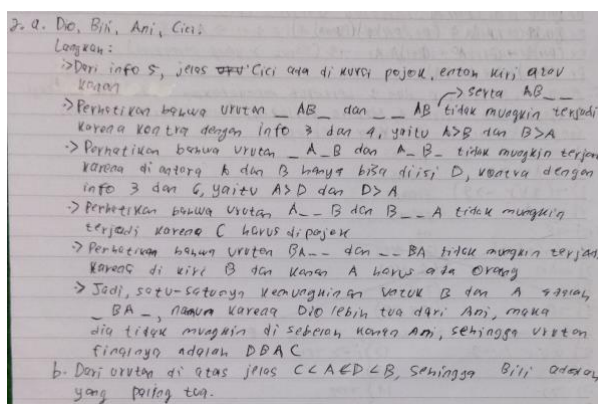 2. a. Dio, Bili, Ani, Cici.
Langkah :
-> Dari info 5, jelas Cici ada di kursi pojok, entah kiri atau
kanan
-> serta AB _ _
-> Perhatikan bahwa urutan _ AB _ dan _ _ AB tidak mungkin terjadi
karena kontra dengan info 3 dan 4, yaitu A>B dan B>A
-> Perhatikan bahwa urutan _ A _ B dan A _ B _ tidak mungkin terjadi
karena di antara A dan B hanya bisa diisi D, kontra dengan
info 3 dan 6, yaitu A>D dan D>A
-> Perhatikan bahwa urutan A _ _ B dan B _ _ A tidak mungkin
terjadi karena C harus dipojok
-> Perhatikan bahwa urutan BA _ _ dan _ _ BA tidak mungkin terjadi
karena di kiri B dan kanan A harus ada orang
-> Jadi, satu-satunya kemungkinan untuk B dan A adalah
_ BA _, namun karena Dio lebih tua dari Ani, maka
dia tidak mungkin di sebelah kanan Ani, sehingga urutan
finalnya adalah DBAC
b. Dari urutan di atas jelas C<A<D<B, sehingga Bili adalah
yang paling tua.